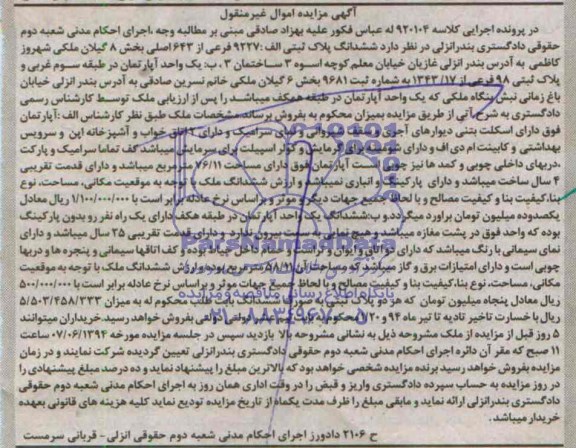 آگهی مزایده اموال غیرمنقول
در پرونده اجرایی کلاسه ۹۲۰۱۰۴ له عباس فکور علیه بهزاد صادقی مبنی بر مطالبه وجه ،اجرای احکام مدنی شعبه دوم
حقوقی دادگستری بندرانزلی در نظر دارد ششدانگ پلاک ثبتی الف :۹۲۲۷ فرعی از ۶۴۳ اصلی بخش ۸ گیلان ملکی شهروز
کاظمی به آدرس بندر انزلی غازیان خیابان معلم کوچه اسوه ۳ ساختمان ۳ ، ب: یک واحد آپارتمان در طبقه سوم غربی و
پلاک ثبتی ۹۸ فرعی از ۱۳۴۳/۱۷ به شماره ثبت ۹۶۸۱ بخش ۶ گیلان ملکی خانم نسرین صادقی به آدرس بندر انزلی خیابان
باغ زمانی نبش پگاه ملکی که یک واحد آپارتمان در طبقه همکف میباشد را پس از ارزیابی ملک توسط کارشناس رسمی
دادگستری به شرح آتی از طریق مزایده بمیزان محکوم به بفروش برساند مشخصات ملک طبق نظر کارشناس الف :آپارتمان
فوق دارای اسکلت بتنی دیوارهای آجری سقف تیرچه وانی نمای سرامیک و دارای ۲ اتاق خواب و آشپزخانه اپن و سرویس
بهداشتی و کابینت ام دی اف و دارای شوفاژ برای گرمایش و کولر اسپیلت برای سرمایش میباشد کف تماما سرامیک و پارکت
،دربهای داخلی چوبی و کمد ها نیز چوبی است آپارتمان فوق دارای مساحت ۷۶/۱۱ مترمربع میباشد و دارای قدمت تقریبی
۴ سال ساخت میباشد و دارای پارکینگ و انباری نمیباشد و ارزش ششدانگ ملک با توجه به موقعیت مکانی، مساحت، نوع
بنا،کیفیت بنا و کیفیت مصالح و با لحاظ جمیع جهات دیگر و موثر و براساس نرخ عادله برابر است با ۱/۱۰۰/۰۰۰/۰۰۰ ریال معادل
یکصدوده میلیون تومان براورد میگردد و ب:ششدانگ یک واحد آپارتمان در طبقه همکف دارای یک راه نفر رو بدون پارکینگ
بوده که واحد فوق در پشت مغازه میباشد و هیچ نمایی به سمت بیرون ندارد و دارای قدمت تقریبی ۲۵ سال میباشد و دارای
نمای سیمانی با رنگ میباشد که دارای خواب و ایوان و تراست و حمام داخل حیاط بوده و کف اتاقها سیمانی و پنجره ها و دربها
چوبی است و دارای امتیازات برق و گاز میباشد که مساحت آن ۵۸/۲۱ مترمربع بوده و ارزش ششدانگ ملک با توجه به موقعیت
مکانی، مساحت، نوع بنا،کیفیت بنا و کیفیت مصالح و با لحاظ جمیع جهات موثر و براساس نرخ عادله برابر است با ۵۰۰/۰۰۰/۰۰۰
ریال معادل پنجاه میلیون تومان که هر دو پلاک ثبتی به صورت ششدانگ بابت طلب محکوم له به میزان ۵/۵۰۳/۴۵۸/۳۳۳
ریال با خسارت تاخیر تادیه تا تیر ماه ۹۴ و ۲۰٪ محکوم به بابت نیم عشر دولتی بفروش خواهد رسید.خریداران میتوانند
۵ روز قبل از مزایده از ملک مشروحه ذیل به نشانی مشروحه بالا بازدید سپس در جلسه مزایده مورخه ۰۷/۰۶/۱۳۹۴ ساعت
۱۱ صبح که مقر آن دائره اجرای احکام مدنی شعبه دوم حقوقی دادگستری بندرانزلی تعیین گردیده شرکت نمایند و در زمان
مزایده بفروش خواهد رسید برنده مزایده شخصی خواهد بود که بالاترین مبلغ را پیشنهاد نماید و ده درصد مبلغ پیشنهادی را
در روز مزایده به حساب سپرده دادگستری واریز و قبض را در وقت اداری همان روز به اجرای احکام مدنی شعبه دوم حقوقی
دادگستری بندرانزلی ارائه نماید و مابقی مبلغ را ظرف مدت یکماه از تاریخ مزایده تودیع نماید کلیه هزینه های قانونی بعهده
خریدار میباشد.
ح ۲۱۰۶ دادورز اجرای احکام مدنی شعبه دوم حقوقی انزلی - قربانی سرمست
ParsNamadData
پایگاه اطلاع رسانی مناقصه و مزایده
۰۲۱-۸۸۳۴۹۶۷۰-۵